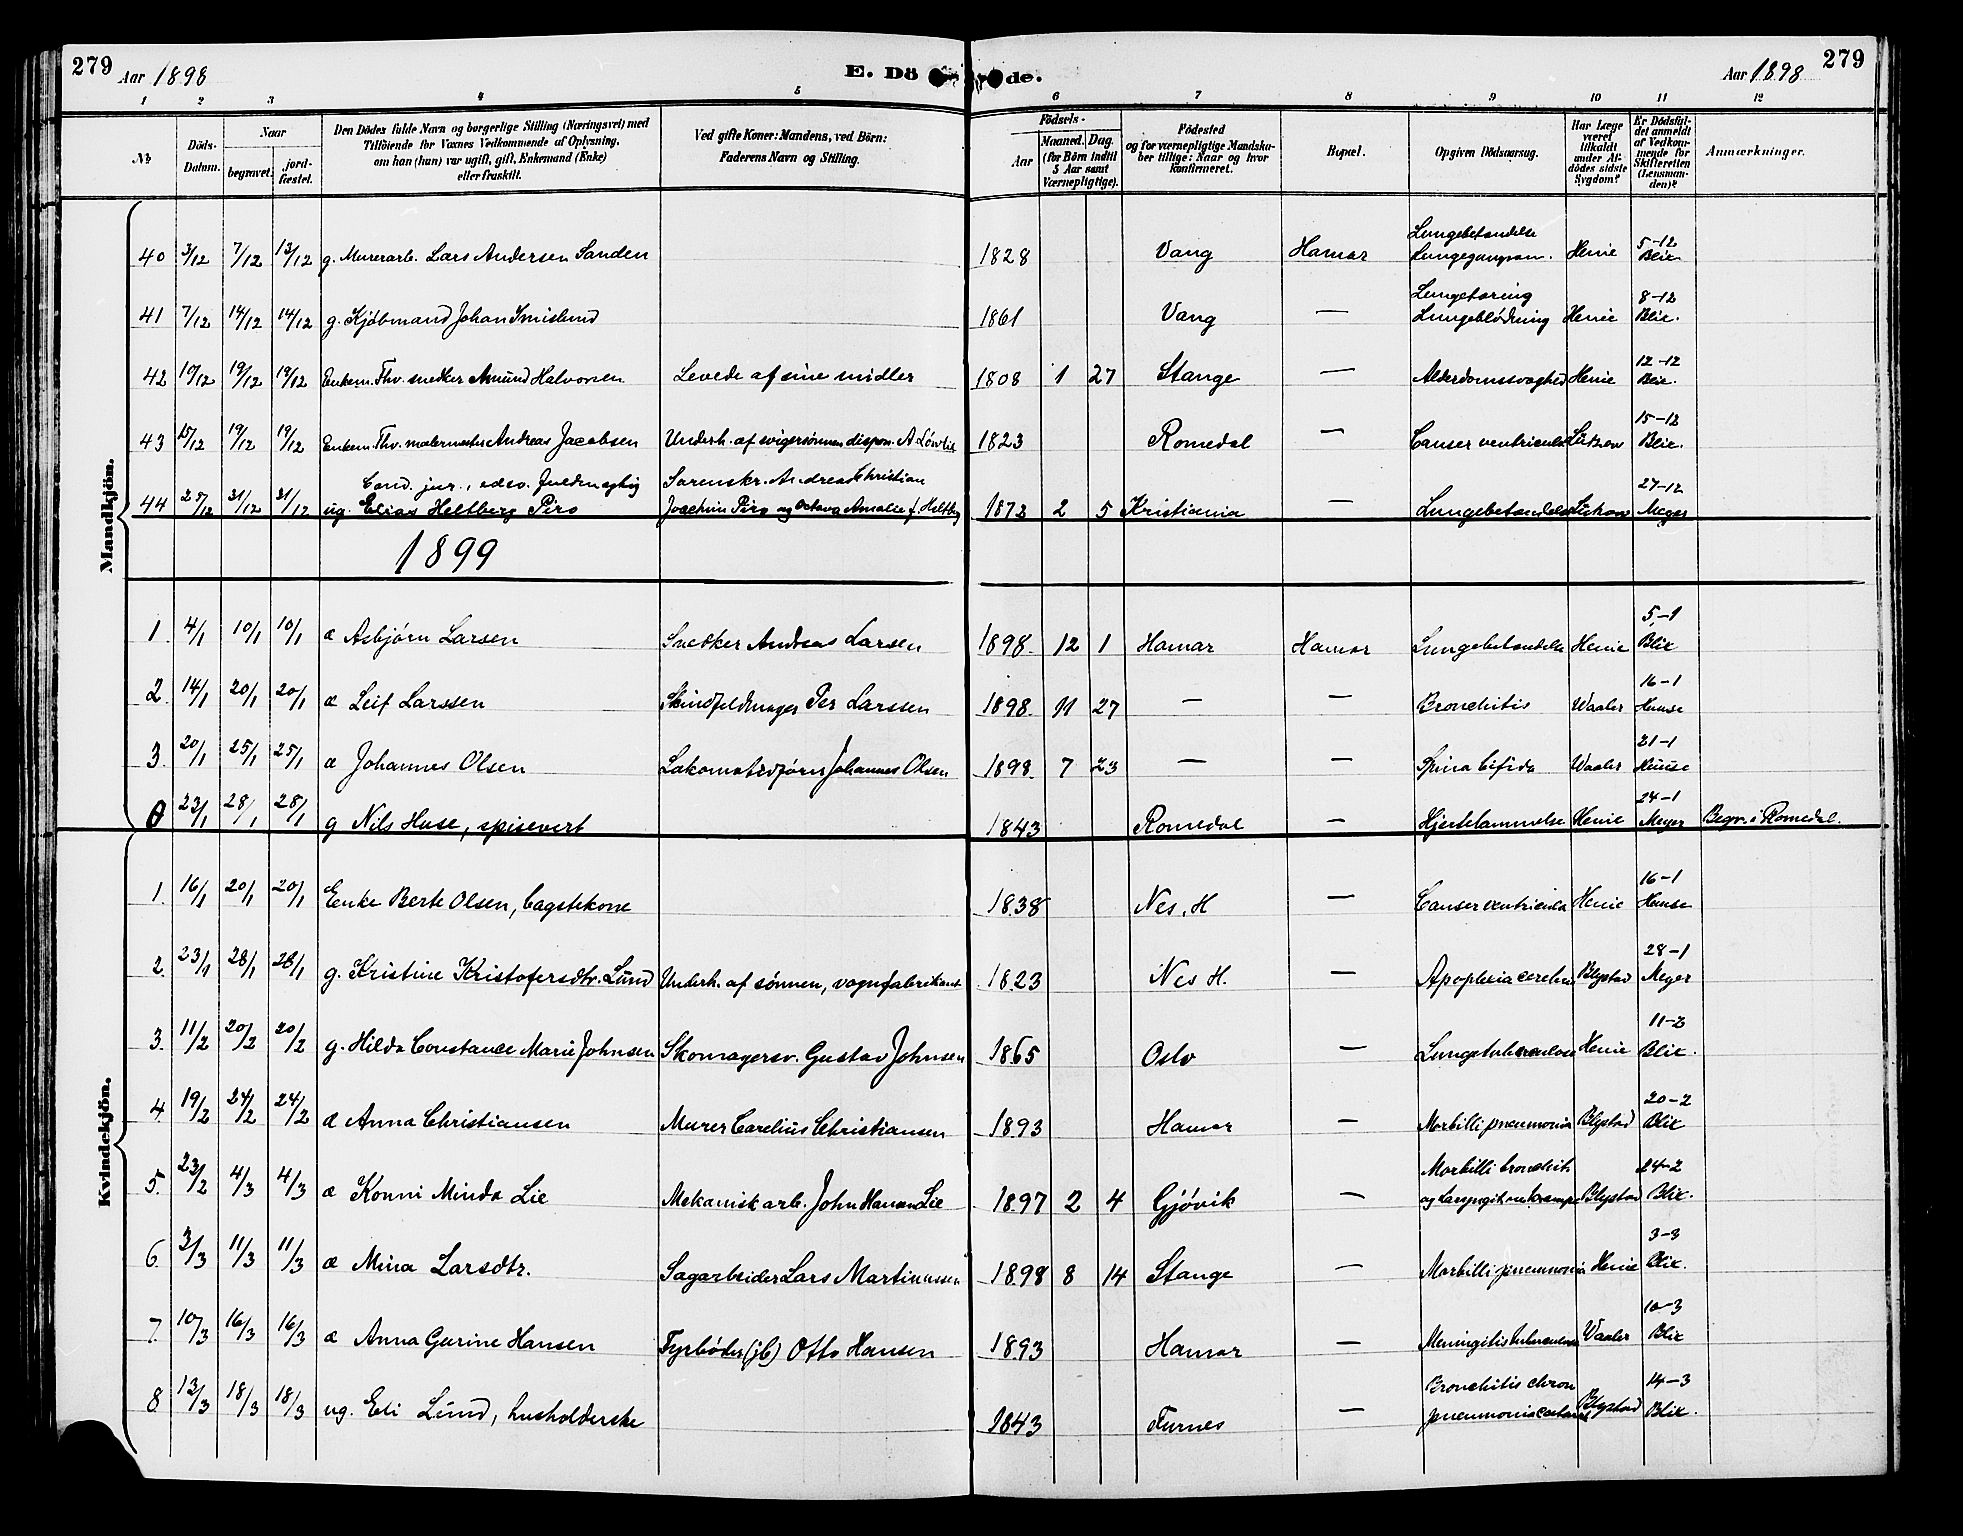 279 Aar 1898 E. Dö de. Aar 1898 279
1 2 3 4 5 6 7 8 9 10 11 12
№ Döds-Datum. Naar begravet. jordfæstet. Den Dödes fulde Navn og borgerlige Stilling (Næringsvei) med Tilföiende for Voxnes Vedkommende af Oplysning, om han (hun) var ugift, gift, Enkemand (Enke) eller fraskilt. Ved gifte Koner: Mandens, ved Börn: Faderens Navn og Stilling. Födsels- Aar Maaned. Dag. (for Börn indtil 5 Aar samt Værnepligtige). Födested og for værnepligtige Mandskaber tillige: Naar og hvor konfirmeret. Bopæl. Opgiven Dödsaarsag. Har Læge været tilkaldt under Afdödes sidste Sygdom? Er Dödsfaldet anmeldt af Vedkommende for Skifteretten (Lensmanden)? Anmærkninger.
Mandkjön.
40 3/12 7/12 13/12 g. Murerarb. Lars Andersen Sanden 1828 Vang Hamar Lungebetændelse Henie 5-12 Blix
41 7/12 14/12 14/12 g. Kjøbmand Johan Smislund 1861 Vang — Lungetæring Lungeblødning Henie 8-12 Blix.
42 10/12 19/12 19/12 Enkem. Fhv. snedker Amund Halvorsen Levede af sine midler 1808 1 27 Stange — Alderdomssvaghed Henie 12-12 Blix.
43 15/12 19/12 19/12 Enkem. Fhv. malermester Andreas Jacobsen Underh. af svigersønnen dispon. A. 1823 Romedal — Cancer ventriculi Lützow 15-12 Blix.
44 25/12 31/12 31/12 Cand. jur., edsv. fuldmægtig ug. Elias Heltberg Piro Sorenskr. Andreas Christian Joachim Piro og Octava Amalie f. Heltberg 1873 2 5 Kristiania — Lungebetændelse Lützow 27-12 Meyer
1899
1. 4/1 10/1 10/1 æ Asbjørn Larsen Snedker Andreas Larsen 1898. 12 1 Hamar Hamar Lungebetændelse Henie 5-1 Blix
2. 14/1 20/1 20/1 æ Leif Larssen Skindfeldmager Per Larssen 1898. 11 27 — — Bronchitis Waaler 16-1
3. 20/1 25/1 25/1 æ Johannes Olsen Lokomotivfører Johannes Olsen 1898. 7 23 — — Spina bifida Waaler 21-1
0 23/1 28/1 28/1 g Nils Huse, spisevert 1843 Romedal — Hjertelammelse Henie 24-1 Meyer Begr. i Romedal.
Kvindekjön.
1. 16/1 20/1 20/1 Enke Berte Olsen, bagstekone 1838 Nes. H — Cancer ventriculi Henie 16-1
2. 23/1 28/1 28/1 g. Kristine Kristofersdtr. Lund Underh. af sønnen, vognfabrikant 1823 Nes H. — Apoplexia cerebri Blystad 28-1 Meyer
3. 11/2 20/2 20/2 g. Hilda Constance Marie Johnsen Skomagersv. Gustav Johnsen 1865 Oslo — Lungetuberculose Henie 11-2 Blix.
4. 19/2 24/2 24/2 æ Anna Christiansen Murer Carelius Christiansen 1893 Hamar — Morbilli pneumonia Blystad 20-2 Blix
5. 23/2 4/3 4/3 æ Konni Minda Lie Mekanisk arb. John Hansen Lie 1897 2 4 Gjøvik — Morbilli bronchit. og Blystad 24-2 Blix.
6. 3/3 11/3 11/3 æ Mina Larsdtr. Sagarbeider Lars Martinussen 1898 8 14 Stange — Morbilli pneumonia Henie 3-3 Blix.
7. 10/3 16/3 16/3 æ Anna Gurine Hansen Fyrbøder (jb) Otto Hansen 1893 Hamar — Meningitis tuberculosa Waaler 10-3 Blix
8 13/3 18/3 18/3 ug. Eli Lund, husholderske 1843 Furnes — Bronchitis chron pneumonia Blystad 14-3 Blix.